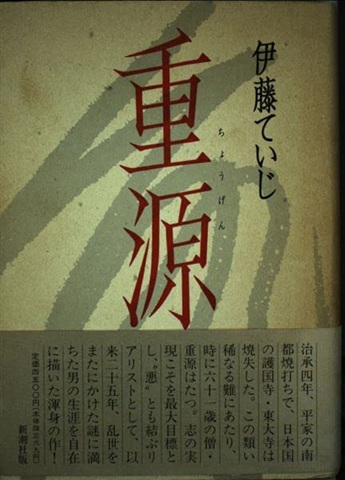 伊藤ていじ
重源
ちょうげん
治承四年、平家の南
都焼打ちで、日本国
の護国寺・東大寺は
焼失した。この類い
稀なる難にあたり、
時に六十一歳の僧・
重源はたつ。志の実
現こそを最大目標と
し、“悪”とも結ぶリ
アリストとして、以
来二十五年、乱世を
またにかけた謎に満
ちた男の生涯を自在
に描いた渾身の作！
新潮社版
定価四五〇〇円